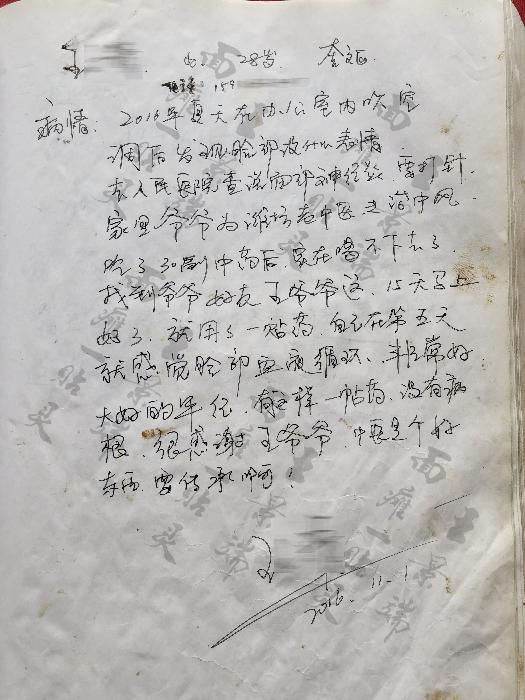 女 28岁 奎文区
159
病情：2016年夏天在办公室内吹空
调后发现脸部没什么表情
去人民医院查说面部神经数 要打针.
家里爷爷为潍坊老中医 主治中风
吃了30副中药后 实在喝不下去了.
找到爷爷好友 王爷爷这. 15天马上
好了. 就用了一帖药. 自己在第五天
就感觉脸部血液循环. 非常好
大好的年纪. 有这样一帖药. 没有病
根. 很感谢王爷爷. 中医是个好
东西. 要传承啊!
2016. 11. 1
王景瑞
面瘫一贴灵